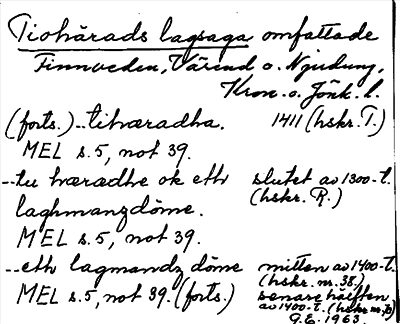 Tiohärads lagsaga omfattade
Finnveden, Värend o. Njudung,
Kron. o. Jönk. l.
(forts.) -- tihæradha. 1411 (hskr. T.)
MEL s. 5, not 39.
-- tu hæradhe ok eth slutet av 1300-t.
laghmanzdöme. (hskr. R.)
MEL s. 5, not 39.
-- eth lagmandz döme mitten av 1400-t.
(hskr. nr. 38)
MEL s. 5, not 39. (forts.) senare hälften
av 1400-t. (hskr. nr.
G.E. 1963.